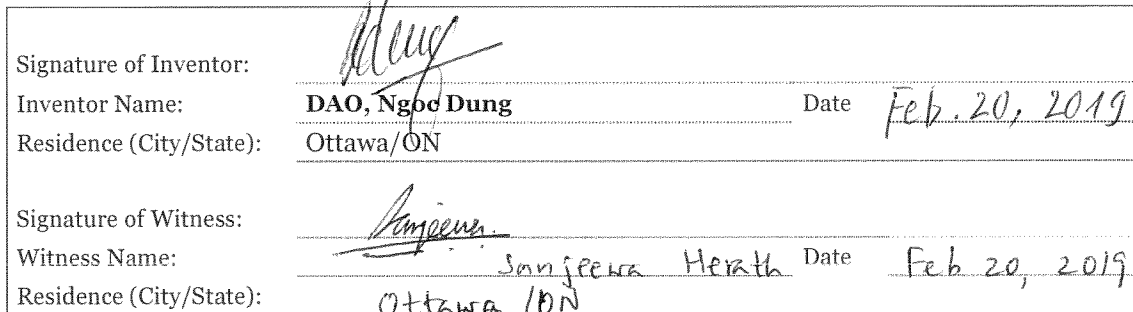 Signature of Inventor:
Inventor Name: DAO, Ngoc Dung Date Feb. 20, 2019
Residence (City/State): Ottawa/ON
Signature of Witness: Sanjeewa.
Witness Name: Sanjeewa Herath Date Feb 20, 2019
Residence (City/State): Ottawa /ON